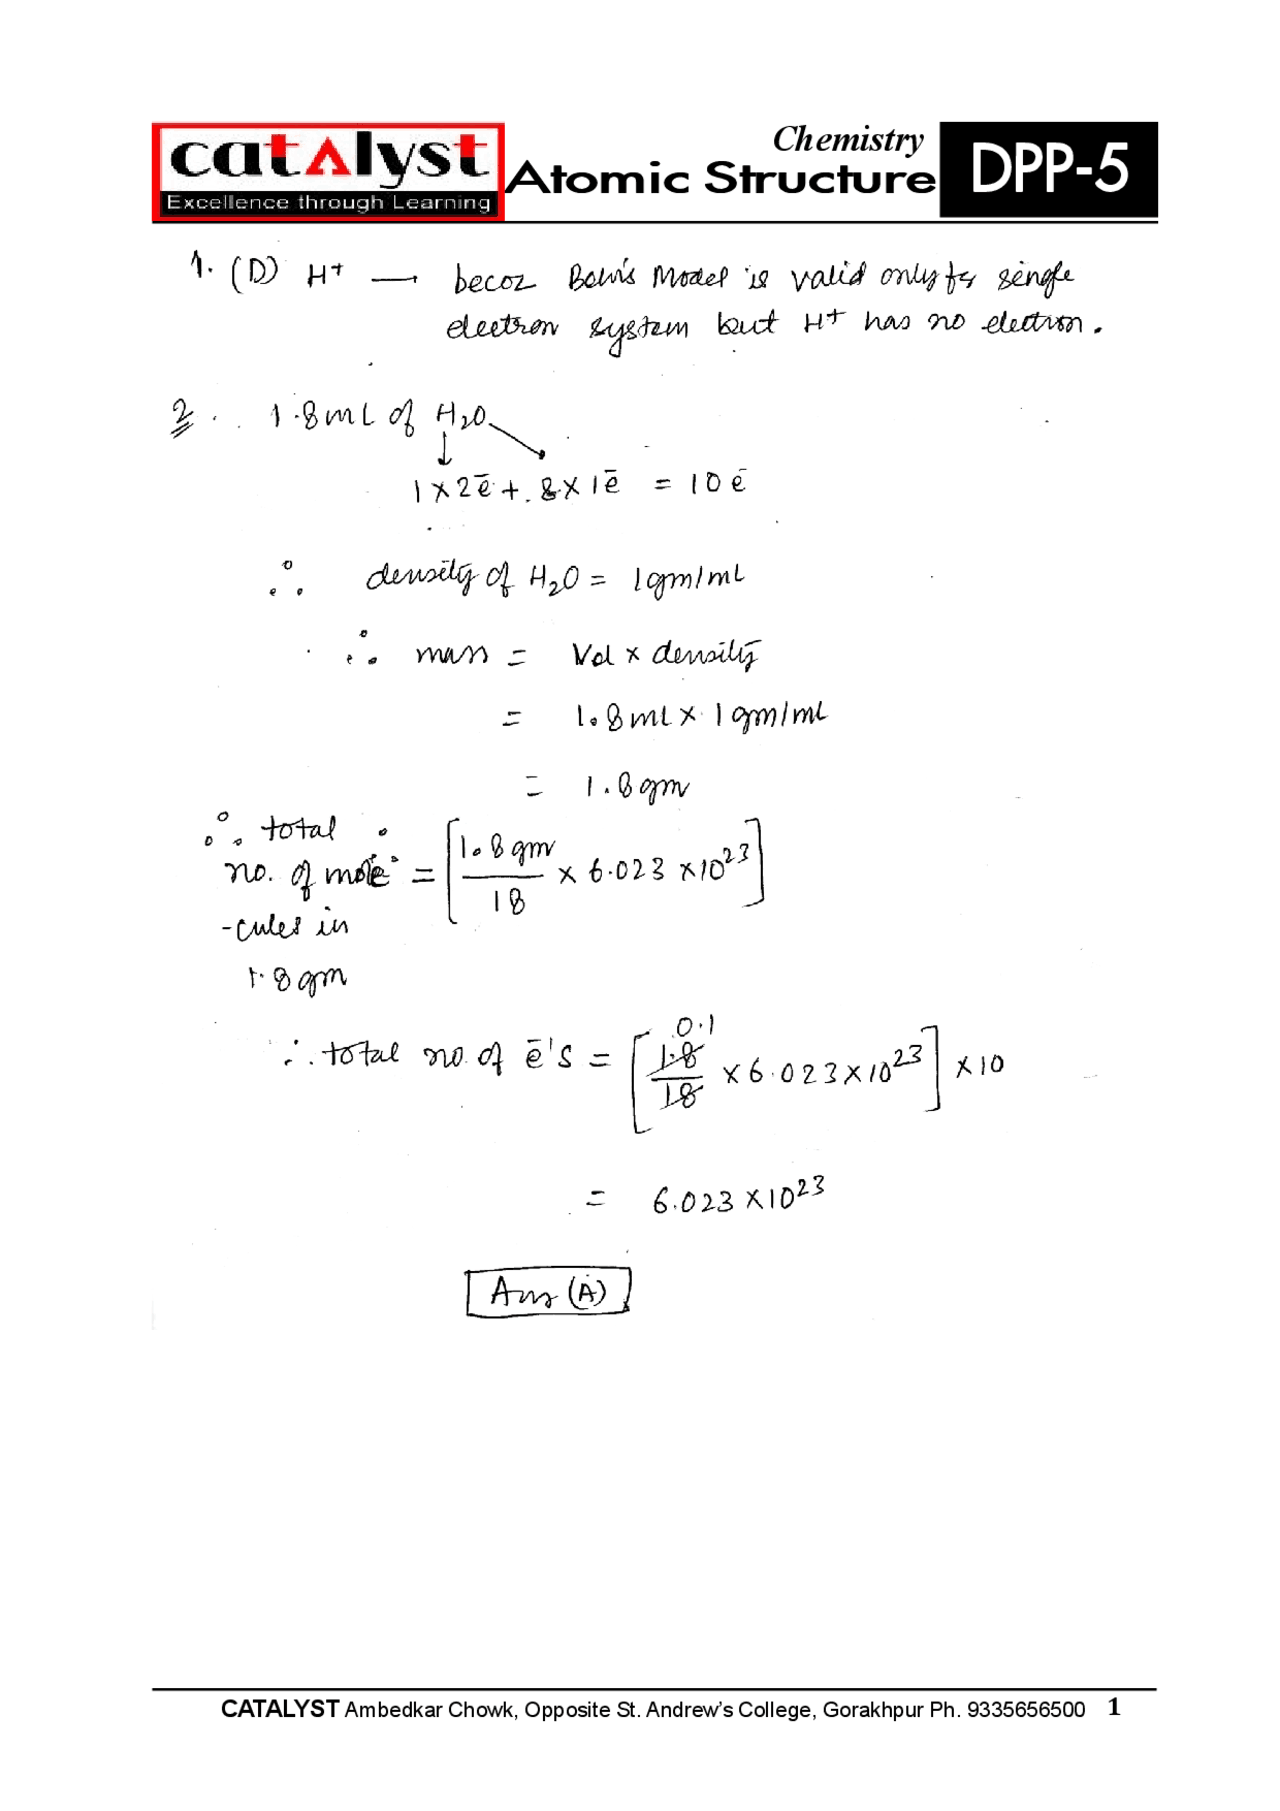 catalyst
Excellence through Learning
Chemistry
Atomic Structure
DPP-5
1. (D) H⁺ — becoz Bohr's Model is valid only for single
electron system but H⁺ has no electron.
2. 1.8mL of H₂O
1×2ē + 8×1ē = 10ē
∴ density of H₂O = 1gm/mL
∴ mass = Vol × density
= 1.8mL × 1gm/mL
= 1.8gm
∴ total
no. of mole = [1.8gm/18 × 6.023 × 10²³]
-cules in
1.8gm
∴ total no. of ē's = [1.8/18 0.1 × 6.023 × 10²³] × 10
= 6.023 × 10²³
Ans (A)
CATALYST Ambedkar Chowk, Opposite St. Andrew's College, Gorakhpur Ph. 9335656500 1